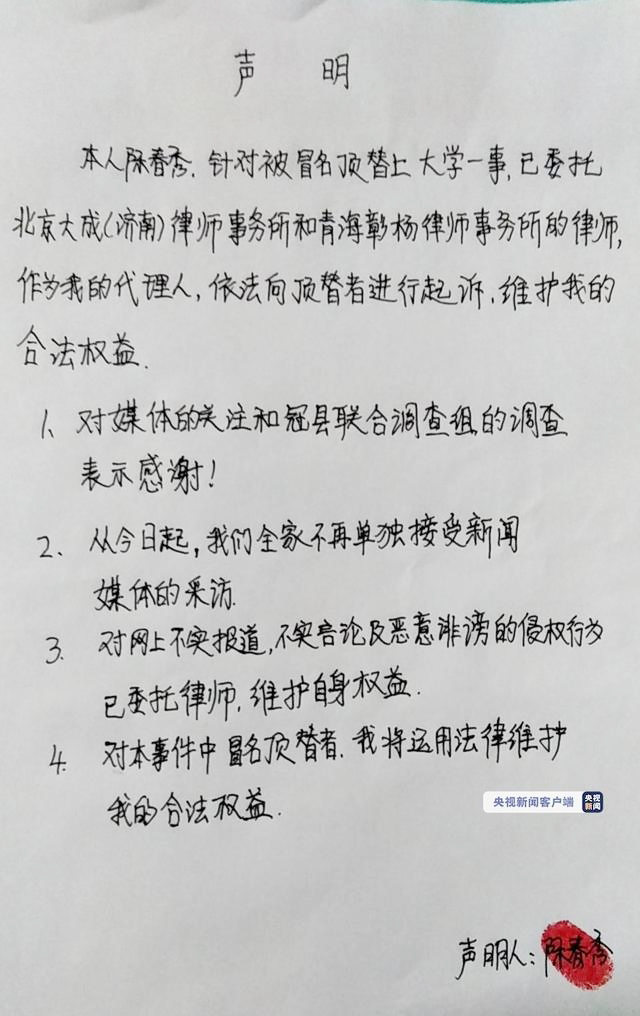 声 明
本人陈春秀，针对被冒名顶替上大学一事，已委托
北京大成(济南)律师事务所和青海彰杨律师事务所的律师，
作为我的代理人，依法向顶替者进行起诉，维护我的
合法权益.
1、对媒体的关注和冠县联合调查组的调查
表示感谢！
2、从今日起，我们全家不再单独接受新闻
媒体的采访.
3. 对网上不实报道，不实言论及恶意诽谤的侵权行为
已委托律师，维护自身权益.
4. 对本事件中冒名顶替者，我将运用法律维护
我的合法权益.
央视新闻客户端 央视新闻
声明人：陈春秀